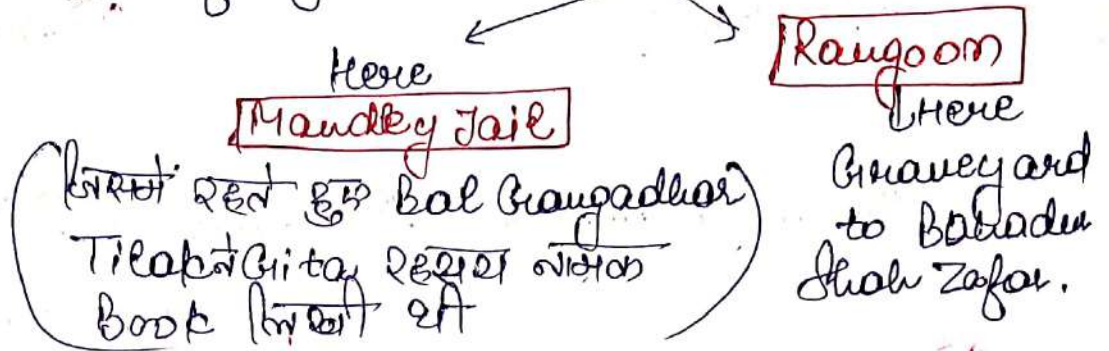 Here
Mandley Jail
जिसमें रहते हुए Bal Gangadhar
Tilak ने Gita रहस्य नामक
Book लिखी थी
Rangoon
Here
Graveyard
to Bahadur
Shah Zafar.